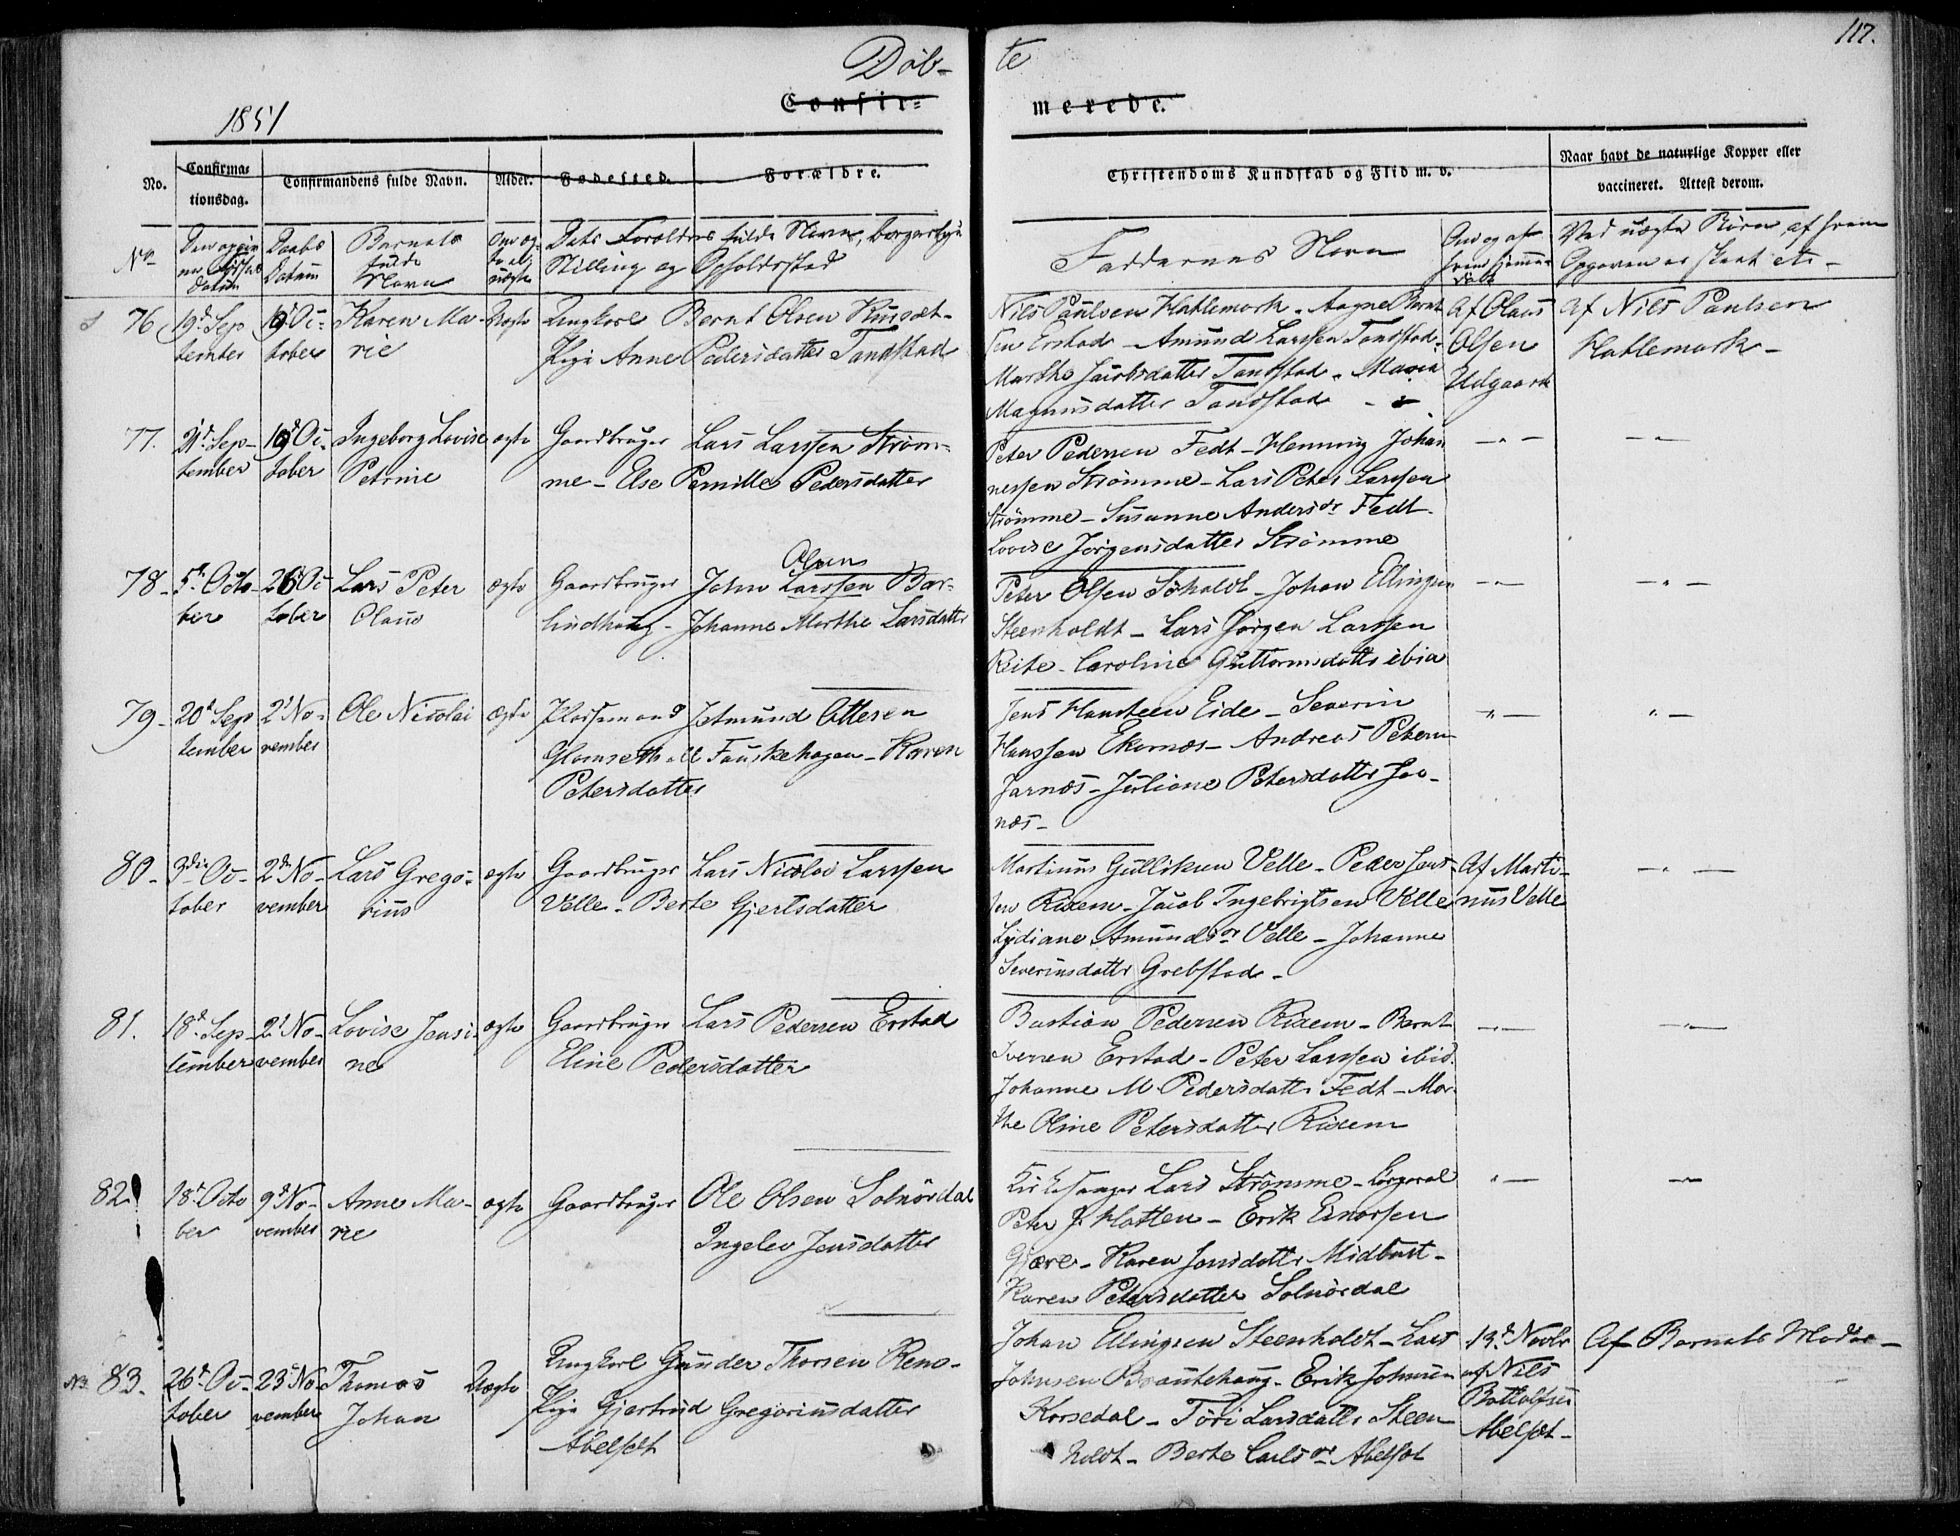 117.
Døb-
te
1851
Confir-
merede.
No.
Confirma-
tionsdag.
Confirmandens fulde Navn.
Alder.
Fødested.
Forældre.
Christendoms Kundskab og Flid m. v.
Naar havt de naturlige Kopper eller
vaccineret. Attest derom.
No
Daabs
Datum
Barnets
fulde
Navn
Dets Forældres fulde Navn, borgerlige
Stilling og Opholdssted
Faddernes Navn
Om og af
hvem hjemme-
døbt
Ved uægte Børn af hvem
Opgaven er skeet etc -
76
19d Sep
tember
19 Oc-
tober
Karen Ma-
rie
Uægte
Ungkarl Bernt Olsen
Pige Anne Pedersdatter Tandstad
Nils Paulsen Hatlemark - Aagne Bernt
sen Erstad - Amund Larssen Tandstad -
Marthe Jacobsdatter Tandstad - Maria
Magnusdatter Tandstad
Af Olaus
Olsen
Udgaard
Af Nils Paulsen
Hatlemark -
77.
21d Sep-
tember
19d Oc-
tober
Ingeborg Lovise
Petrine
ægte
Gaardbruger Lars Larssen Strøm-
me - Else Pernille Pedersdatter
Peter Pedersen Fedt - Henning Johan
nessen Strømme - Lars Peter Larssen
Strømme - Susanne Andersdr Fedt -
Lovise Jørgensdatter Strømme
78 -
5t Octo-
ber
26 Oc-
tober
Lars Peter
Olaus
ægte
Olsen
Gaardbruger John Larssen Bar-
lindhaug - Johanne Marthe Larsdatter
Peter Olsen Søholdt - Johan Ellingsen
Steenholdt - Lars Jørgen Larssen
Reite - Caroline Guttormsdatter ibid
79 -
20d Sep
tember
2d No-
vember
Ole Nicolai
ægte
Pladsemand Jetmund Ottesen
Glomseth all Fauskehagen - Karen
Petersdatter
Jens Hansteen Eide - Severin
Hanssen Ekornæs - Andreas Petersen
Jarnæs - Juliane Petersdatter Jar-
næs -
80 -
3die Oc-
tober
2den No-
vember
Lars Grego-
rius
ægte
Gaardbruger Lars Nicolai Larssen
Velle - Berte Gjertsdatter
Martinus Gulliksen Velle - Peder Jens-
sen Rixem - Jacob Ingebrigtsen Velle
Lydiane Amundsdr Velle - Johanne
Severinsdatter Grebstad -
Af Marti-
nus Velle
81.
18d Sep-
tember
2d No-
vember
Lovise Jensi-
ne
ægte
Gaardbruger Lars Pedersen Erstad
Eline Pedersdatter
Bastian Pedersen Rixem - Bernt
Iversen Erstad - Peter Larssen ibid.
Johanne M. Pedersdatter Fedt - Mar-
the Oline Petersdatter Rixem
82
18d Octo
ber
9d No-
vember
Anne Ma-
rie
ægte
Gaardbruger Ole Olsen Solnørdal
Ingelev Jensdatter
Kirkesanger Lars Strømme - Corporal
Peter J. Hatten - Erik Einarsen
Gjære - Karen Jonsdatter Midtbust -
Karen Petersdatter Solnørdal
No 83.
26d Oc-
tober
23d No-
vember
Thomas
Johan
Uægte
Ungkarl Gunder Thorsen Reno-
Pige Gjertrud Gregoriusdatter
Abelsæt
Johan Ellingsen Steenholdt - Lars
Johnsen Brautehaug - Erik Johnsen
Korsedal - Tori Larsdatter Steen-
holdt - Berte Carlsdr Abelsæt
13d Novbr
af Nils
Bottolfsen
Abelsæt -
Af Barnets Moder -